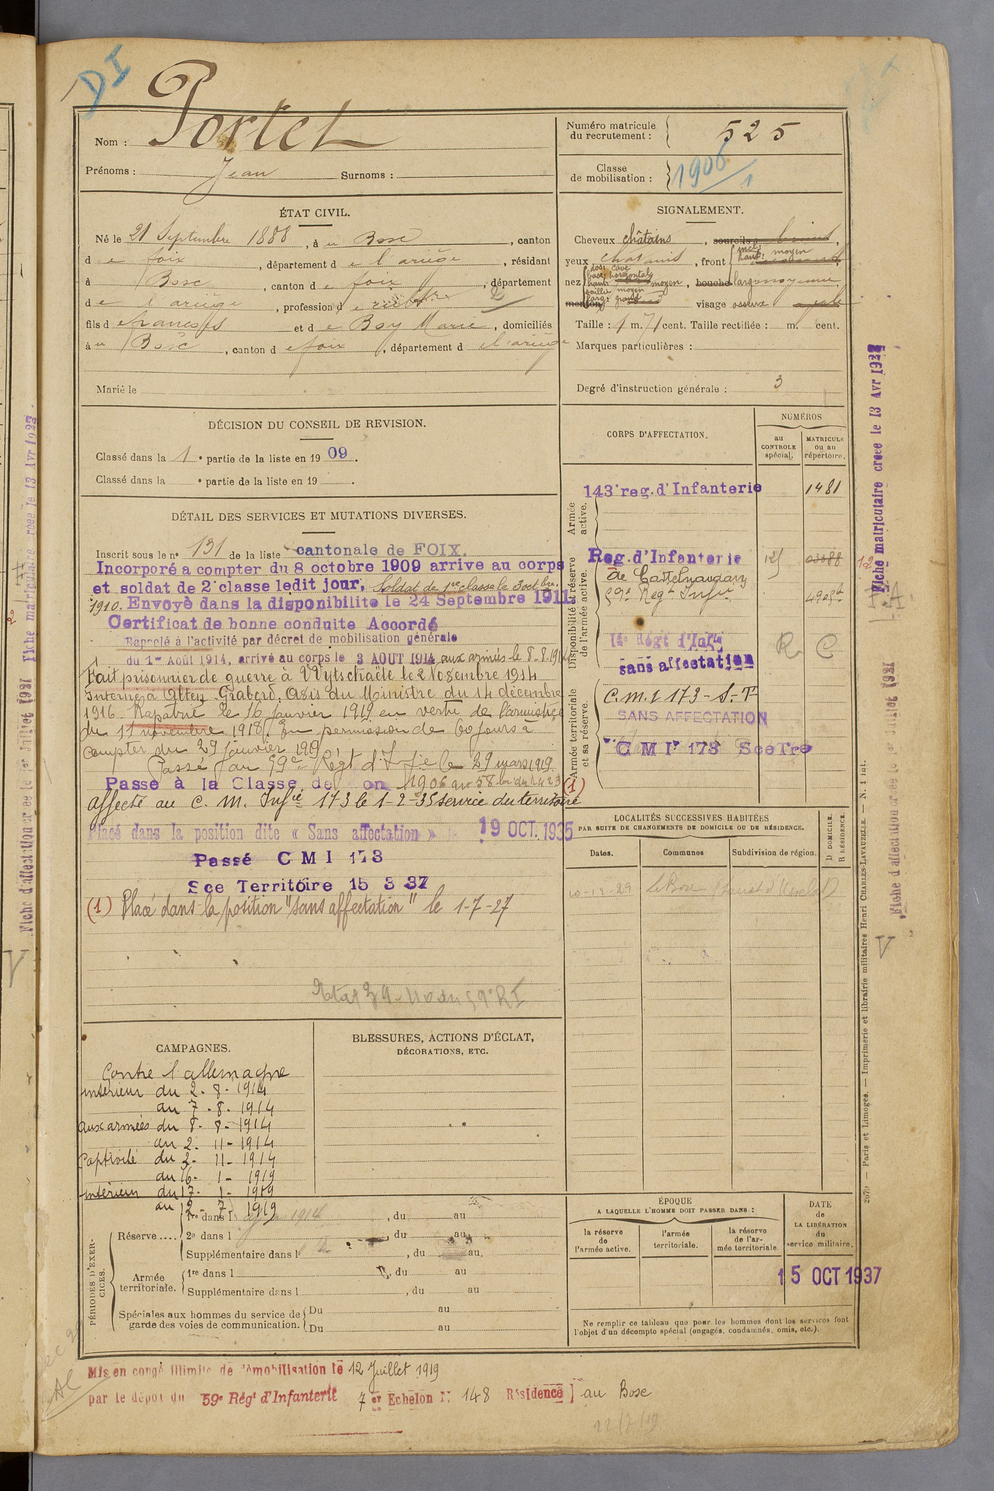 DI
Nom : Portet
Prénoms : Jean Surnoms :
Numéro matricule du recrutement : 525
Classe de mobilisation : 1906
1
ÉTAT CIVIL.
Né le 21 Septembre 1888, à u Bosc, canton
d e foix, département d e l'ariège, résidant
à Bosc, canton d e foix, département
d e l'ariège, profession d e
fils d e françois et d e Boy Marie, domiciliés
à u Bosc, canton d e foix, département d e l'ariège
Marié le
SIGNALEMENT.
Cheveux châtains, sourcils
yeux chatains, front
nez moyen, bouche large moyenne
menton visage osseux
Taille : 1 m. 71 cent. Taille rectifiée : m. cent.
Marques particulières :
Degré d'instruction générale : 3
DÉCISION DU CONSEIL DE REVISION.
Classé dans la 1 e partie de la liste en 1909.
Classé dans la e partie de la liste en 19 .
DÉTAIL DES SERVICES ET MUTATIONS DIVERSES.
Inscrit sous le n° 131 de la liste cantonale de FOIX.
Incorporé a compter du 8 octobre 1909 arrive au corps
et soldat de 2e classe ledit jour, Soldat de 1re classe le 3 octbre
1910. Envoyé dans la disponibilite le 24 Septembre 1911
Certificat de bonne conduite Accordé
Rappelé à l'activité par décret de mobilisation générale
du 1er Août 1914, arrivé au corps le 3 AOUT 1914, aux armées le 8.8.1914
Fait prisonnier de guerre à Wytschaëte le 2 Novembre 1914
Interné à Alten Grabow, Avis du Ministre du 14 décembre
1916 Rapatrié le 16 janvier 1919 en vertu de l'armistice
du 11 novembre 1918. En permission de 60 jours à
compter du 29 janvier 1919
Passé au 59e Régt d'Infie le 29 mars 1919
Passé à la Classe de 1906
affecté au C. M. Infie 173 le 1-2-35 service du territoire
Placé dans la position dite « Sans affectation » le 19 OCT. 1935
Passé C M I 173
Sce Territoire 15 3 37
(1) Placé dans la position "sans affectation" le 1-7-27
CORPS D'AFFECTATION.
NUMÉROS
au CONTROLE spécial.
MATRICULE ou au répertoire.
Armée active.
143e reg. d'Infanterie 1481
Disponibilité et réserve de l'armée active.
Reg. d'Infanterie
de Castelnaudary
59e Regt Infie
sans affectation
R C
Armée territoriale et sa réserve.
C.M.I 173 - S. T
SANS AFFECTATION
C M I 173 Sce Tre
(1)
LOCALITÉS SUCCESSIVES HABITÉES
PAR SUITE DE CHANGEMENTS DE DOMICILE OU DE RÉSIDENCE.
Dates. Communes Subdivision de région. D DOMICILE. R RÉSIDENCE.
le Bosc
CAMPAGNES.
Contre l'allemagne
intérieur du 2 - 8 - 1914
au 7 - 8 - 1914
aux armées du 8 - 8 - 1914
au 2 - 11 - 1914
Captivité du 2 - 11 - 1914
au 16 - 1 - 1919
intérieur du 17 - 1 - 1919
au 2 - 7 - 1919
BLESSURES, ACTIONS D'ÉCLAT,
DÉCORATIONS, ETC.
PÉRIODES D'EXERCICES.
Réserve....
1re dans l , du au
2e dans l , du au
Supplémentaire dans l , du au
Armée territoriale.
1re dans l , du au
Supplémentaire dans l , du au
Spéciales aux hommes du service de garde des voies de communication.
Du au
Du au
ÉPOQUE
A LAQUELLE L'HOMME DOIT PASSER DANS :
la réserve de l'armée active.
l'armée territoriale.
la réserve de l'armée territoriale
DATE de LA LIBÉRATION du service militaire.
15 OCT 1937
Ne remplir ce tableau que pour les hommes dont les services font
l'objet d'un décompte spécial (engagés, condamnés, omis, etc.).
Mis en congé illimité de démobilisation le 12 Juillet 1919
par le dépôt du 59e Régt d'Infanterie 7 Echelon N° 148 Résidence au Bosc
Fiche matriculaire créée le 13 Avr 1927
Paris et Limoges. — Imprimerie et librairie militaires Henri CHARLES-LAVAUZELLE.